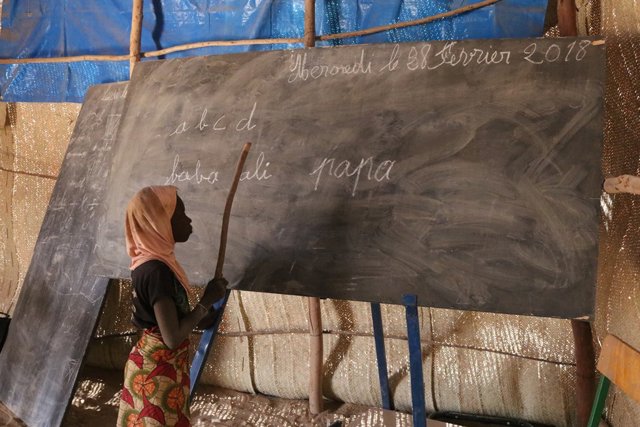 Mercredi le 28 Février 2018
a b c d
baba ali papa